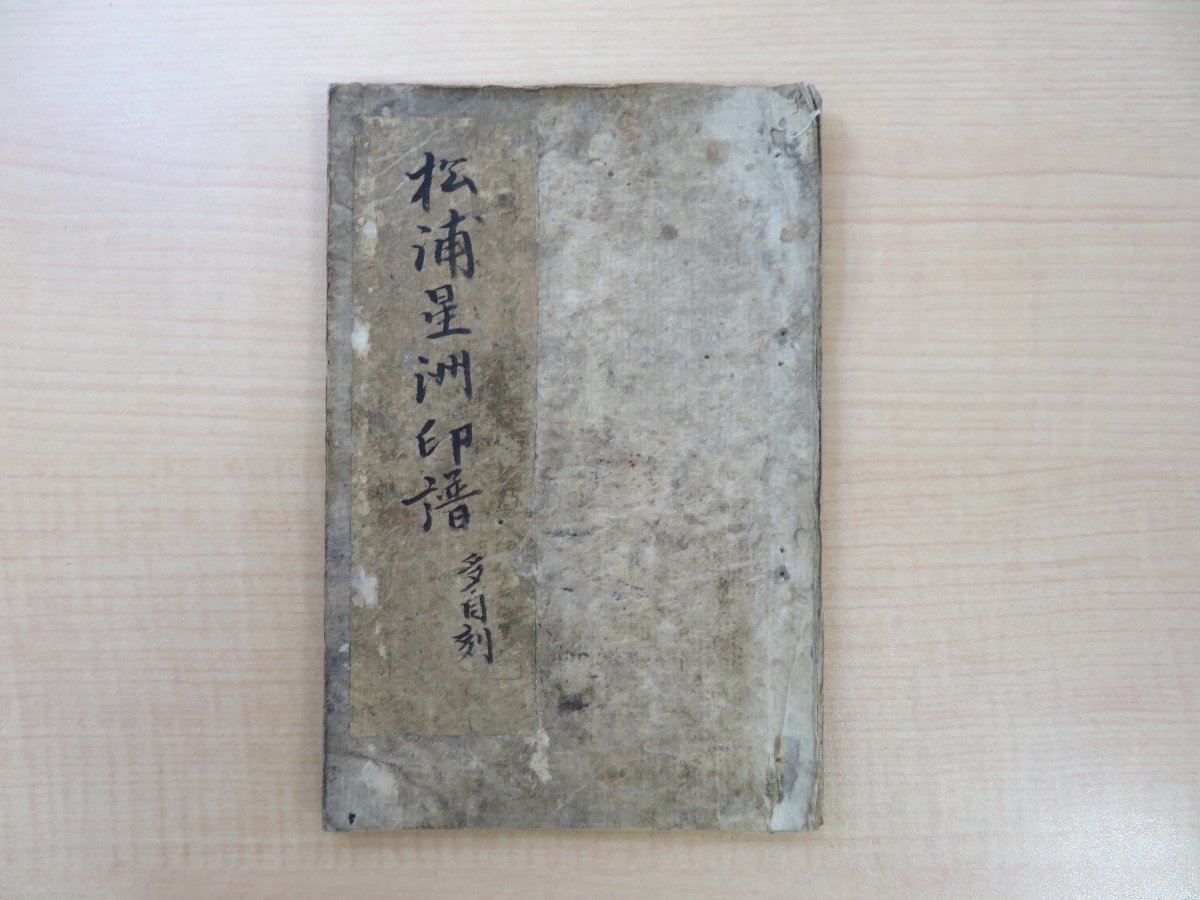 松浦星洲印譜
多自刻